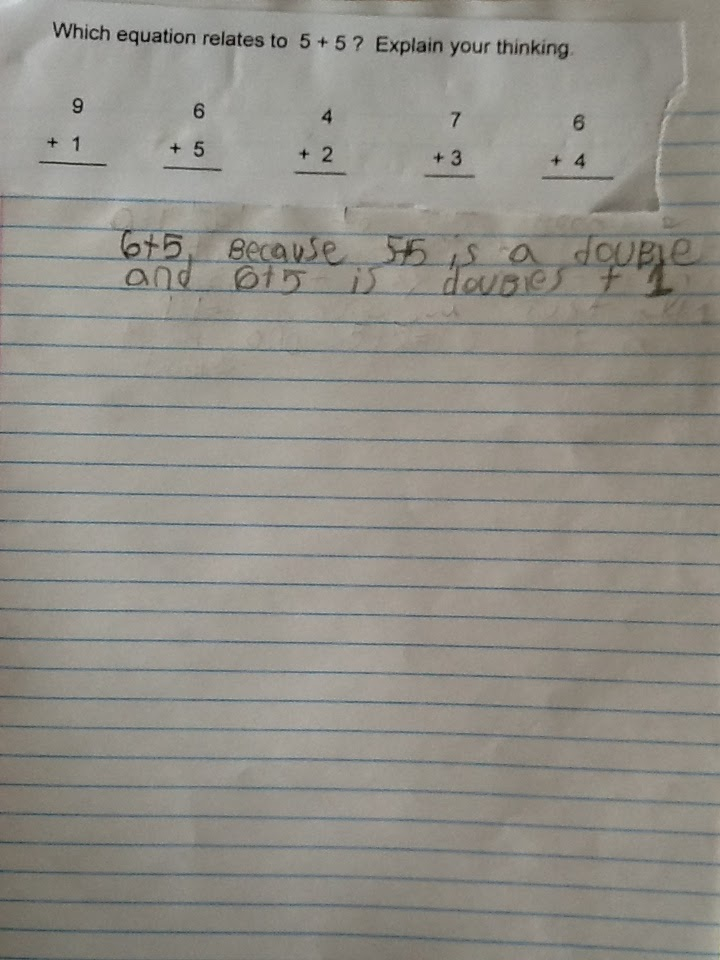 Which equation relates to 5 + 5 ? Explain your thinking.
9 6 4 7 6
+ 1 + 5 + 2 + 3 + 4
6+5, Because 5+5 is a double
and 6+5 is doubles + 1